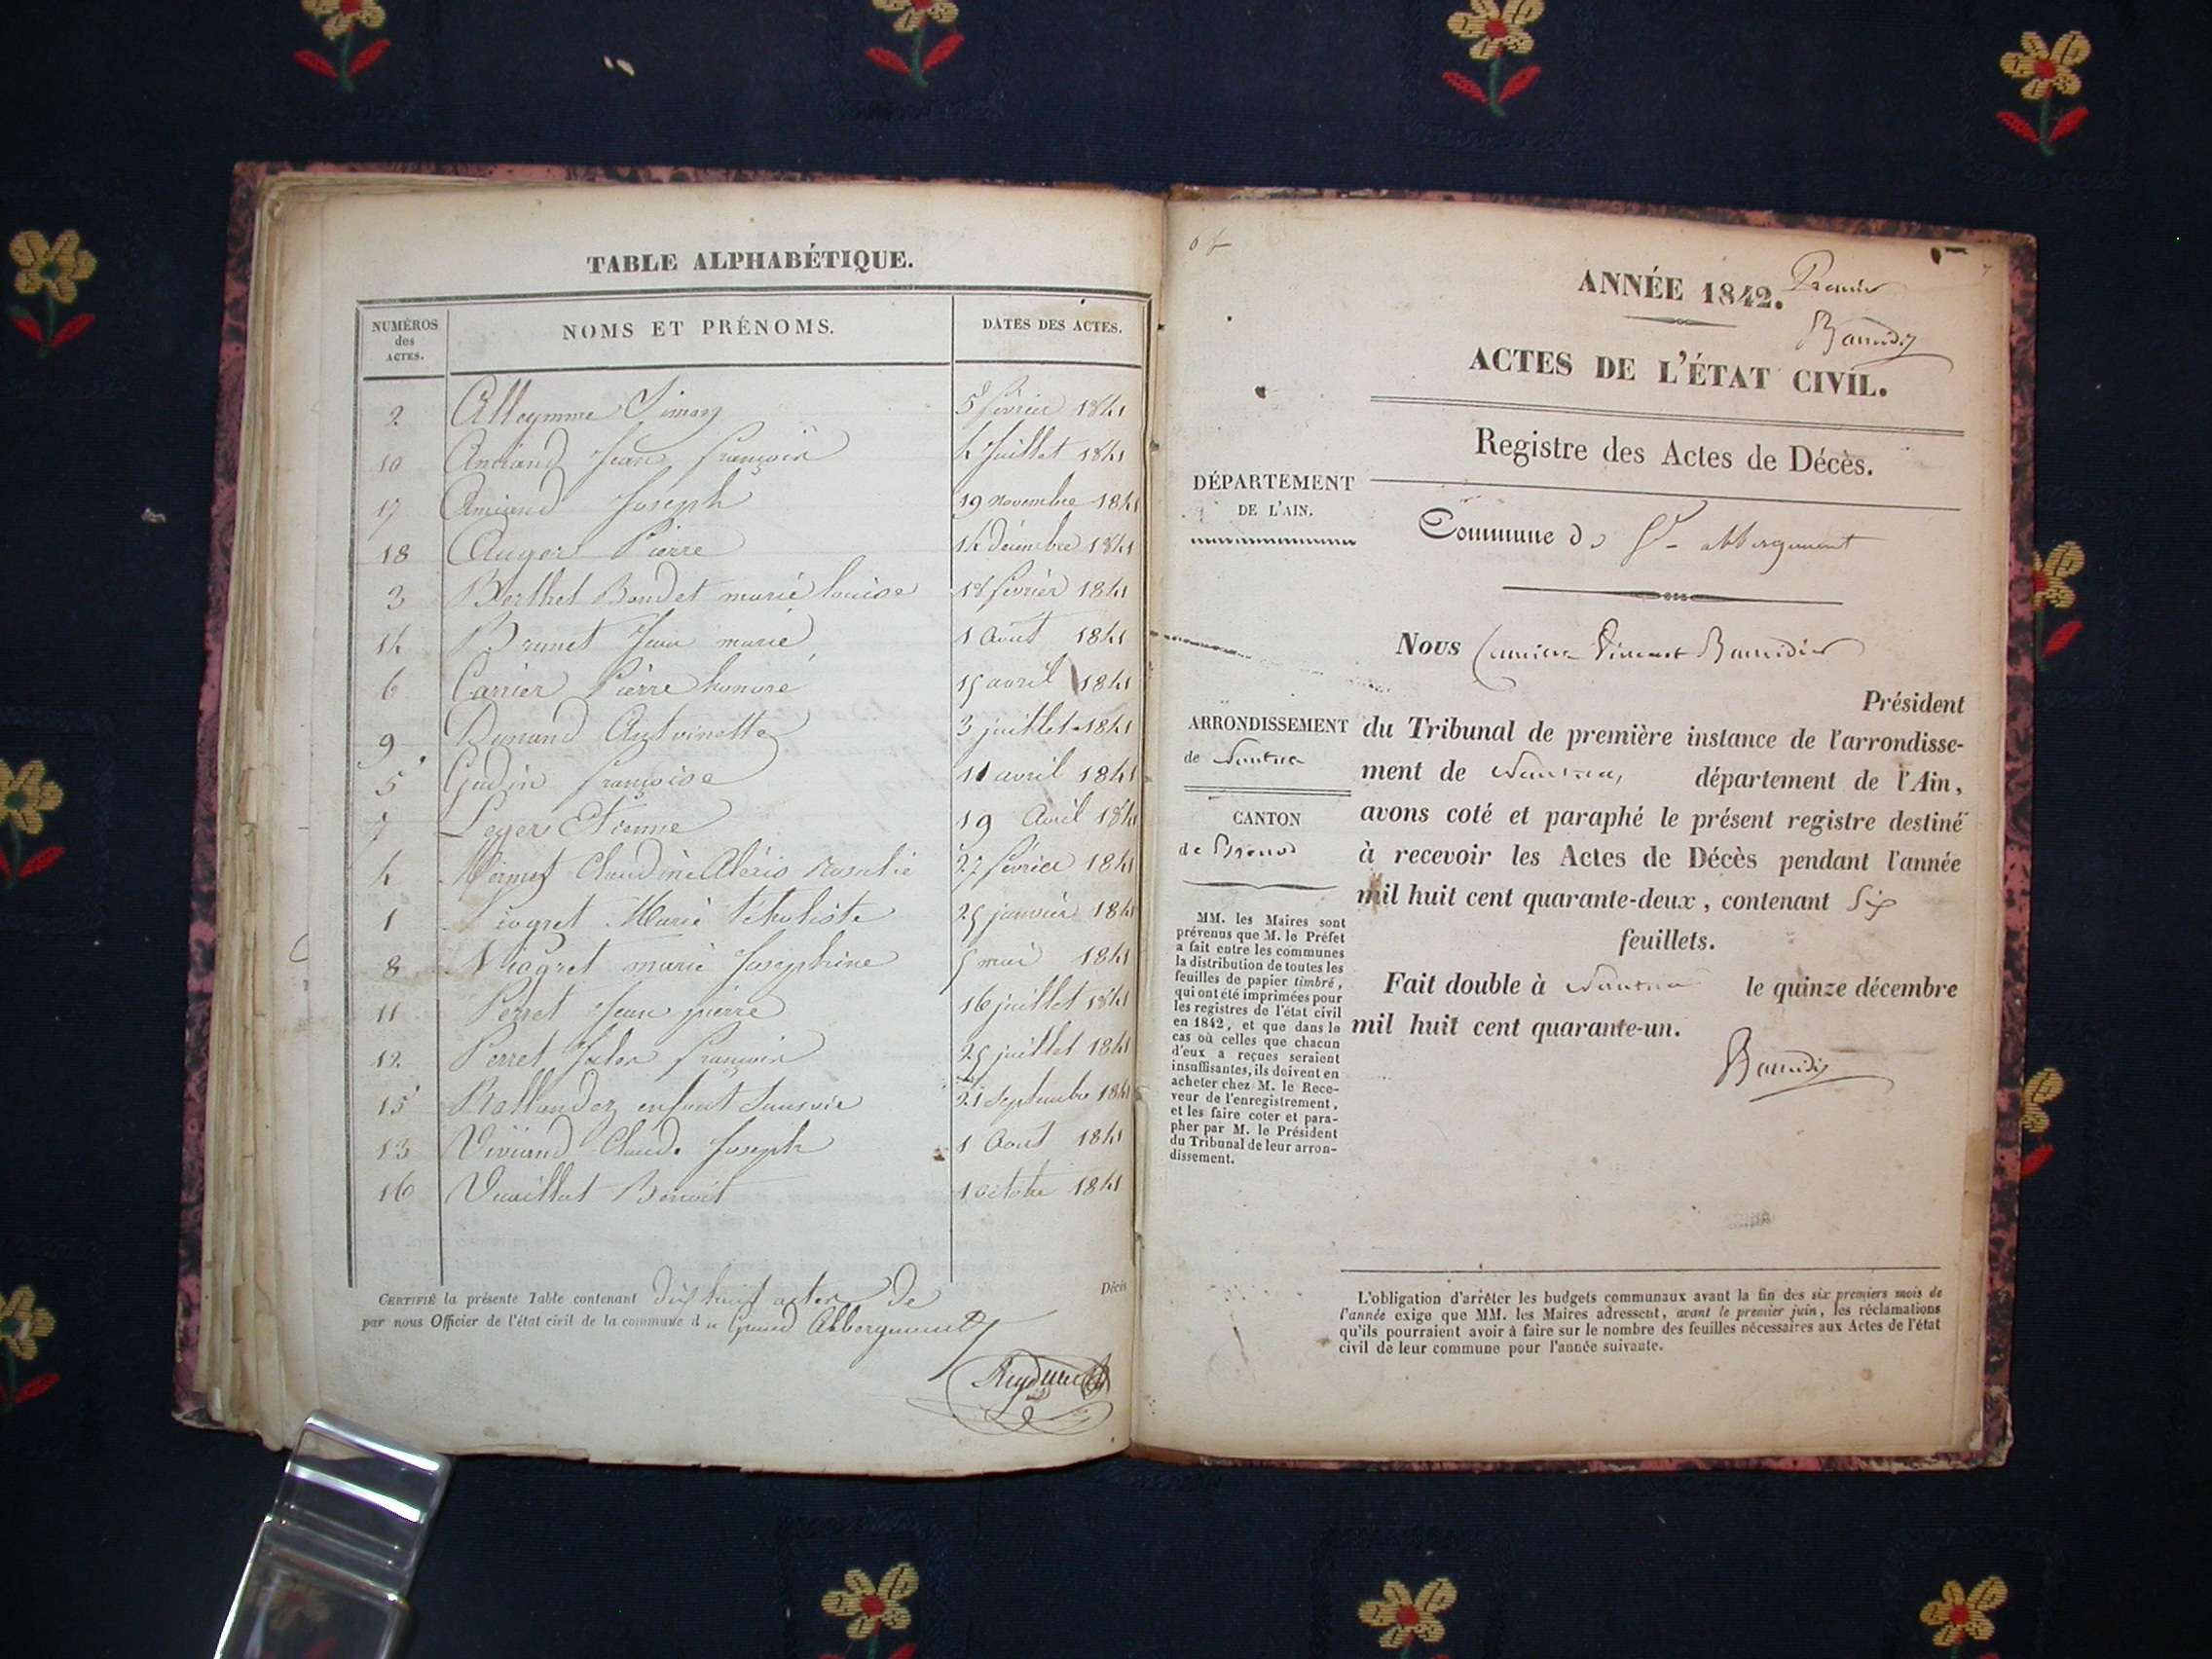 TABLE ALPHABÉTIQUE.
NUMÉROS des ACTES.
NOMS ET PRÉNOMS.
DATES DES ACTES.
2 Alleymme Simon 5 février 1841
10 Amiand Jean françois 4 Juillet 1841
17 Amiand Joseph 19 novembre 1841
18 Auger Pierre 14 décembre 1841
3 Berthet Bondet marie louise février 1841
14 Brunet Jean marie 1 Août 1841
6 Carrier Pierre honoré 15 avril 1841
9 Dunand Antoinette 3 juillet 1841
5 Gudin françoise 11 avril 1841
7 Leger Etienne 19 Avril 1841
4 Claudine Rosalie 27 février 1841
1 Marie 25 janvier 1841
8 marie Josephine 5 mai 1841
11 Perret Jean pierre 16 juillet 1841
12 Perret Jules françois 25 juillet 1841
15 Rollandez enfant sans vie 21 Septembre 1841
13 Viviand Claude Joseph 1 Aout 1841
16 Vuaillat Benoit 1 octobre 1841
CERTIFIÉ la présente Table contenant dix huit actes de Décès
par nous Officier de l'état civil de la commune du Grand Abbergement
ANNÉE 1842. Premier
Baundin
ACTES DE L'ÉTAT CIVIL.
Registre des Actes de Décès.
DÉPARTEMENT
DE L'AIN.
Commune de Gd abbergement
Nous
Président
ARRONDISSEMENT
de Nantua
CANTON
de Brenod
du Tribunal de première instance de l'arrondisse-
ment de Nantua, département de l'Ain,
avons coté et paraphé le présent registre destiné
à recevoir les Actes de Décès pendant l'année
mil huit cent quarante-deux, contenant Six
feuillets.
Fait double à Nantua le quinze décembre
mil huit cent quarante-un.
MM. les Maires sont
prévenus que M. le Préfet
a fait entre les communes
la distribution de toutes les
feuilles de papier timbré,
qui ont été imprimées pour
les registres de l'état civil
en 1842, et que dans le
cas où celles que chacun
d'eux a reçues seraient
insuffisantes, ils doivent en
acheter chez M. le Rece-
veur de l'enregistrement,
et les faire coter et para-
pher par M. le Président
du Tribunal de leur arron-
dissement.
L'obligation d'arrêter les budgets communaux avant la fin des six premiers mois de
l'année exige que MM. les Maires adressent, avant le premier juin, les réclamations
qu'ils pourraient avoir à faire sur le nombre des feuilles nécessaires aux Actes de l'état
civil de leur commune pour l'année suivante.